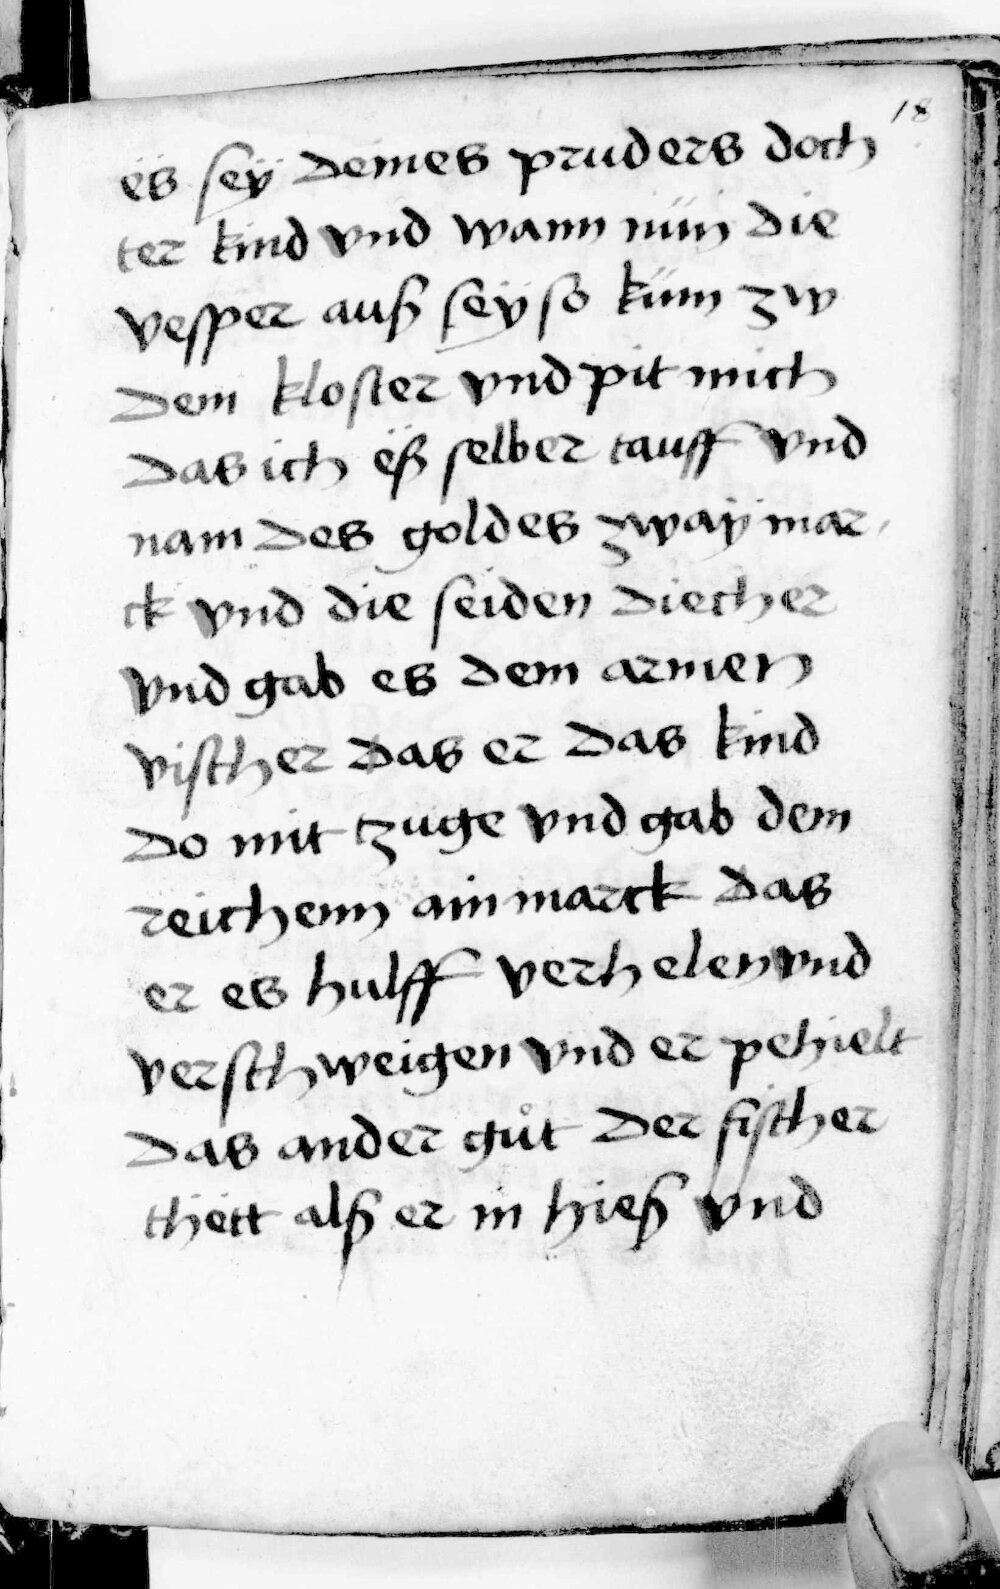 18
ës seÿ deines pruders doch
ter kind vnd wann nün die
vesper auß seÿ so küm zw
dem kloster vnd pit mich
das ich ëß selber tauff vnd
nam des goldes zwaÿ mar
ck vnd die seiden diecher
vnd gab es dem armen
vischer das er das kind
do mit tzuge vnd gab dem
reichenn ain marck das
er es hulff verhelen vnd
verschweigen vnd er pehielt
das ander gůt der fischer
thëtt alß er in hieß vnd